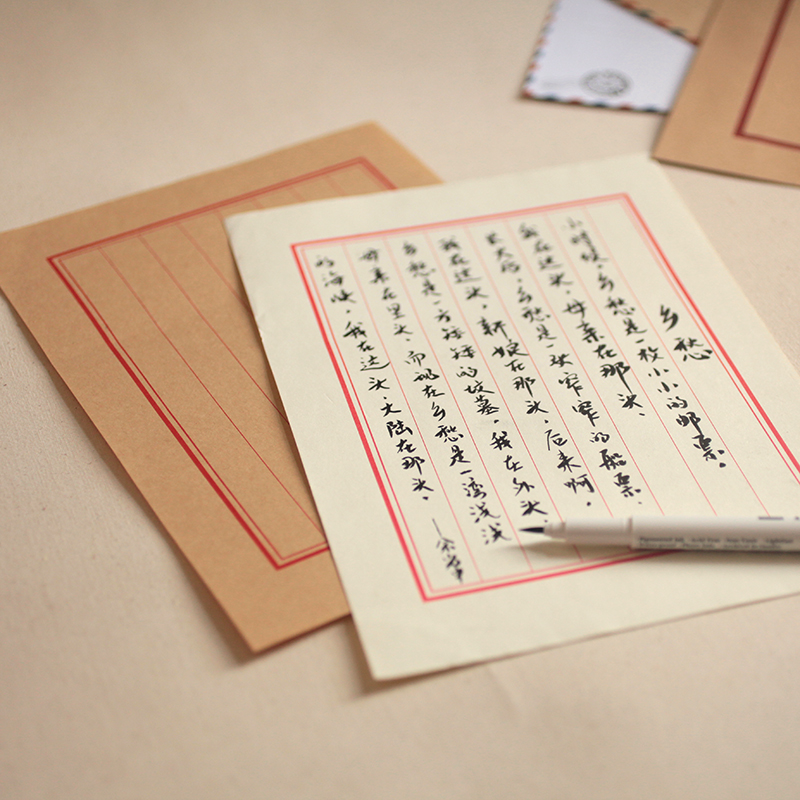 乡愁
小时候，乡愁是一枚小小的邮票，
我在这头，母亲在那头、
长大后，乡愁是一张窄窄的船票，
我在这头，新娘在那头，后来啊，
乡愁是一方矮矮的坟墓，我在外头，
母亲在里头，而现在乡愁是一湾浅浅
的海峡，我在这头，大陆在那头。
—余光中